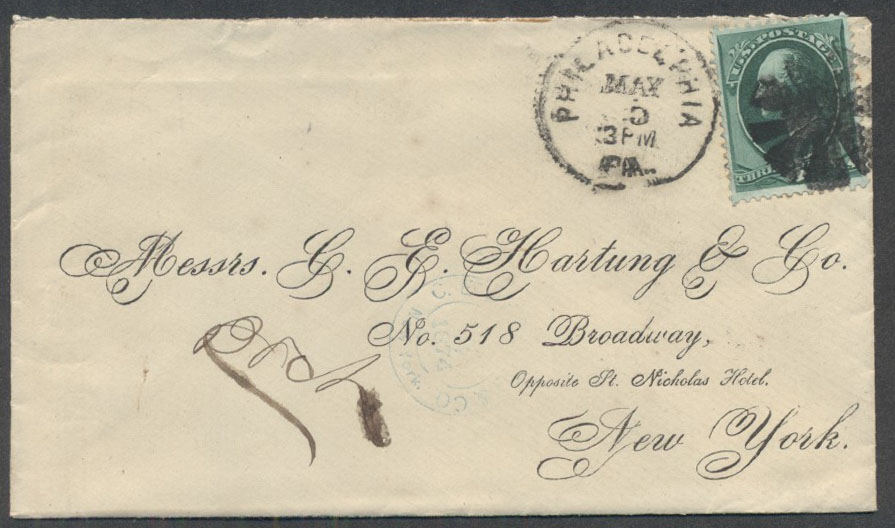 PHILADELPHIA
MAY
3 PM
PA.
U.S. POSTAGE
THREE
Messrs. G. E. Hartung & Co.
No. 518 Broadway,
Opposite St. Nicholas Hotel.
New York.
& CO
New York